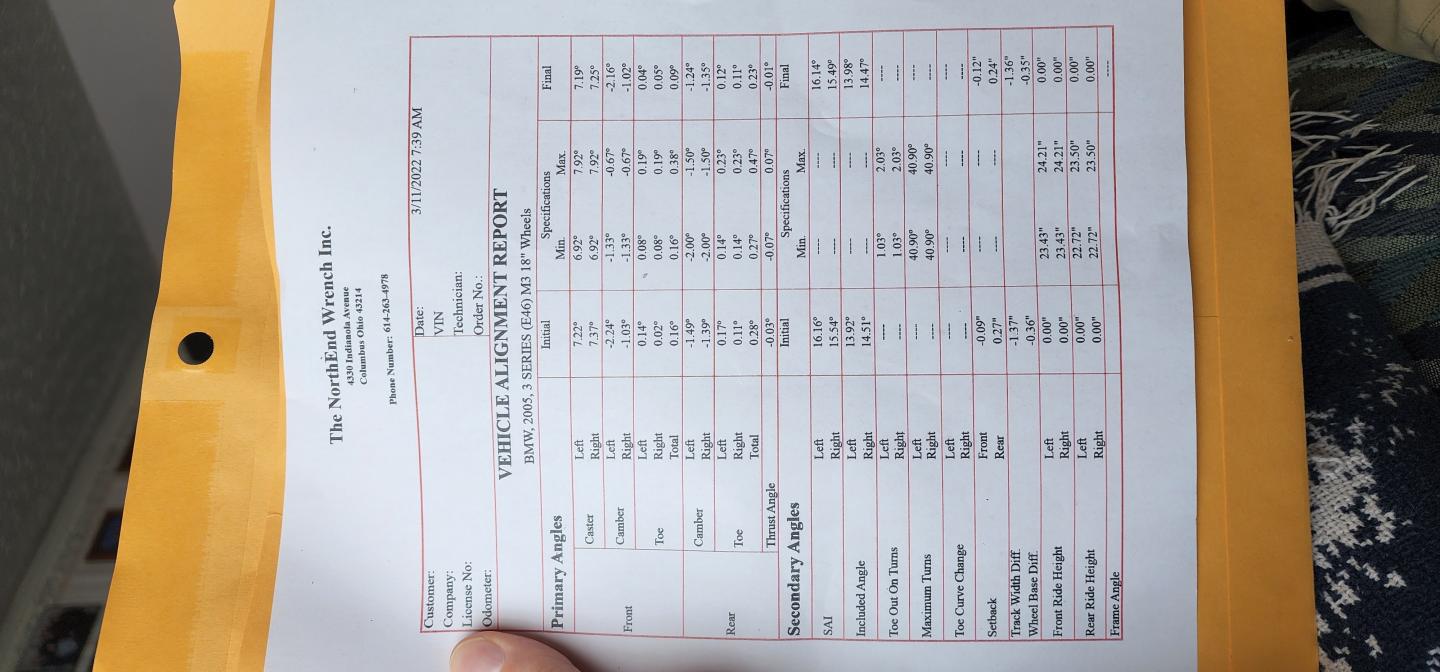 The NorthEnd Wrench Inc.
4330 Indianola Avenue
Columbus Ohio 43214
Phone Number: 614-263-4978
Customer: Date: 3/11/2022 7:39 AM
Company: VIN
License No: Technician:
Odometer: Order No.:
VEHICLE ALIGNMENT REPORT
BMW, 2005, 3 SERIES (E46) M3 18" Wheels
Primary Angles Initial Specifications Final
Min. Max.
Front Caster Left 7.22° 6.92° 7.92° 7.19°
Right 7.37° 6.92° 7.92° 7.25°
Camber Left -2.24° -1.33° -0.67° -2.16°
Right -1.03° -1.33° -0.67° -1.02°
Toe Left 0.14° 0.08° 0.19° 0.04°
Right 0.02° 0.08° 0.19° 0.05°
Total 0.16° 0.16° 0.38° 0.09°
Rear Camber Left -1.49° -2.00° -1.50° -1.24°
Right -1.39° -2.00° -1.50° -1.35°
Toe Left 0.17° 0.14° 0.23° 0.12°
Right 0.11° 0.14° 0.23° 0.11°
Total 0.28° 0.27° 0.47° 0.23°
Thrust Angle -0.03° -0.07° 0.07° -0.01°
Secondary Angles Initial Specifications Final
Min. Max.
SAI Left 16.16° ---- ---- 16.14°
Right 15.54° ---- ---- 15.49°
Included Angle Left 13.92° ---- ---- 13.98°
Right 14.51° ---- ---- 14.47°
Toe Out On Turns Left ---- 1.03° 2.03° ----
Right ---- 1.03° 2.03° ----
Maximum Turns Left ---- 40.90° 40.90° ----
Right ---- 40.90° 40.90° ----
Toe Curve Change Left ---- ---- ---- ----
Right ---- ---- ---- ----
Setback Front -0.09" ---- ---- -0.12"
Rear 0.27" ---- ---- 0.24"
Track Width Diff. -1.37" -1.36"
Wheel Base Diff. -0.36" -0.35"
Front Ride Height Left 0.00" 23.43" 24.21" 0.00"
Right 0.00" 23.43" 24.21" 0.00"
Rear Ride Height Left 0.00" 22.72" 23.50" 0.00"
Right 0.00" 22.72" 23.50" 0.00"
Frame Angle ----